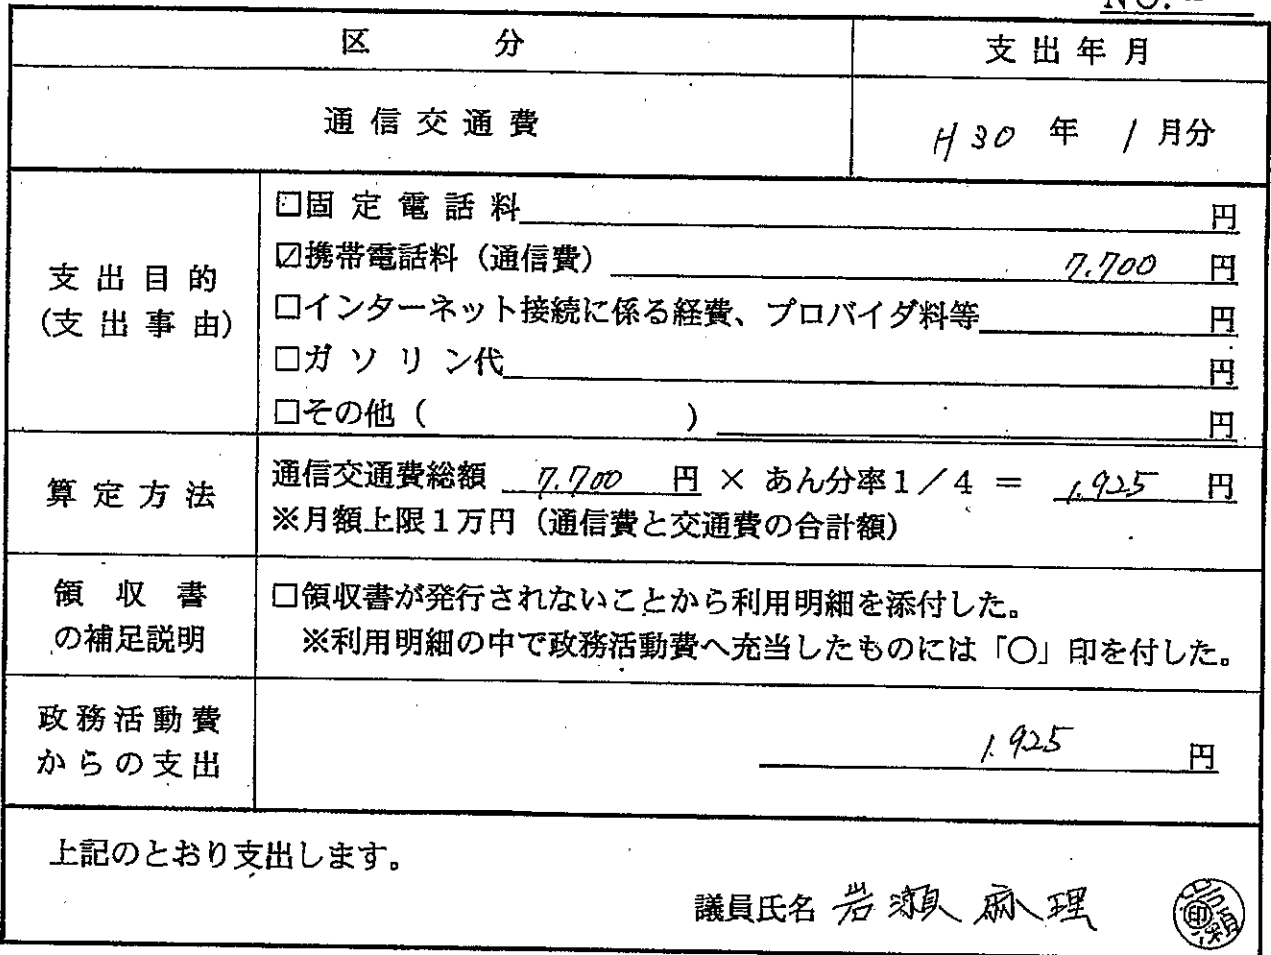 NO.
区分 支出年月
通信交通費 H30年1月分
支出目的
(支出事由)
□固定電話料 円
☑携帯電話料（通信費） 7.700 円
□インターネット接続に係る経費、プロバイダ料等 円
□ガソリン代 円
□その他（ ） 円
算定方法
通信交通費総額 7.700 円 × あん分率1／4 ＝ 1.925 円
※月額上限1万円（通信費と交通費の合計額）
領収書
の補足説明
□領収書が発行されないことから利用明細を添付した。
※利用明細の中で政務活動費へ充当したものには「○」印を付した。
政務活動費
からの支出
1.925 円
上記のとおり支出します。
議員氏名 岩瀬麻理 印